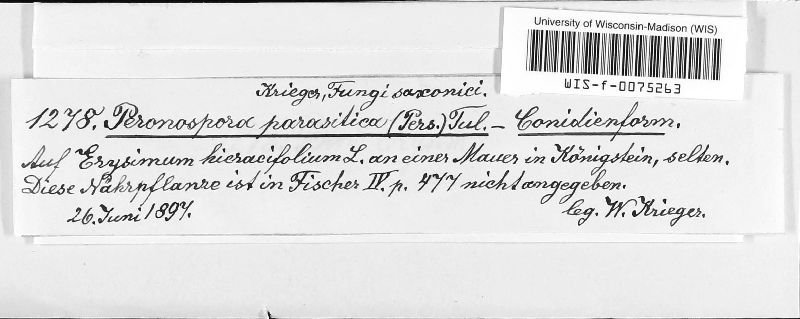 University of Wisconsin-Madison (WIS)
WIS-f-0075263
Krieger, Fungi saxonici.
1278. Peronospora parasitica (Pers.) Tul. – Conidienform.
Auf Erysimum hieracifolium L. an einer Mauer in Königstein, selten.
Diese Nährpflanze ist in Fischer IV. p. 477 nicht angegeben.
26. Juni 1897. leg. W. Krieger.